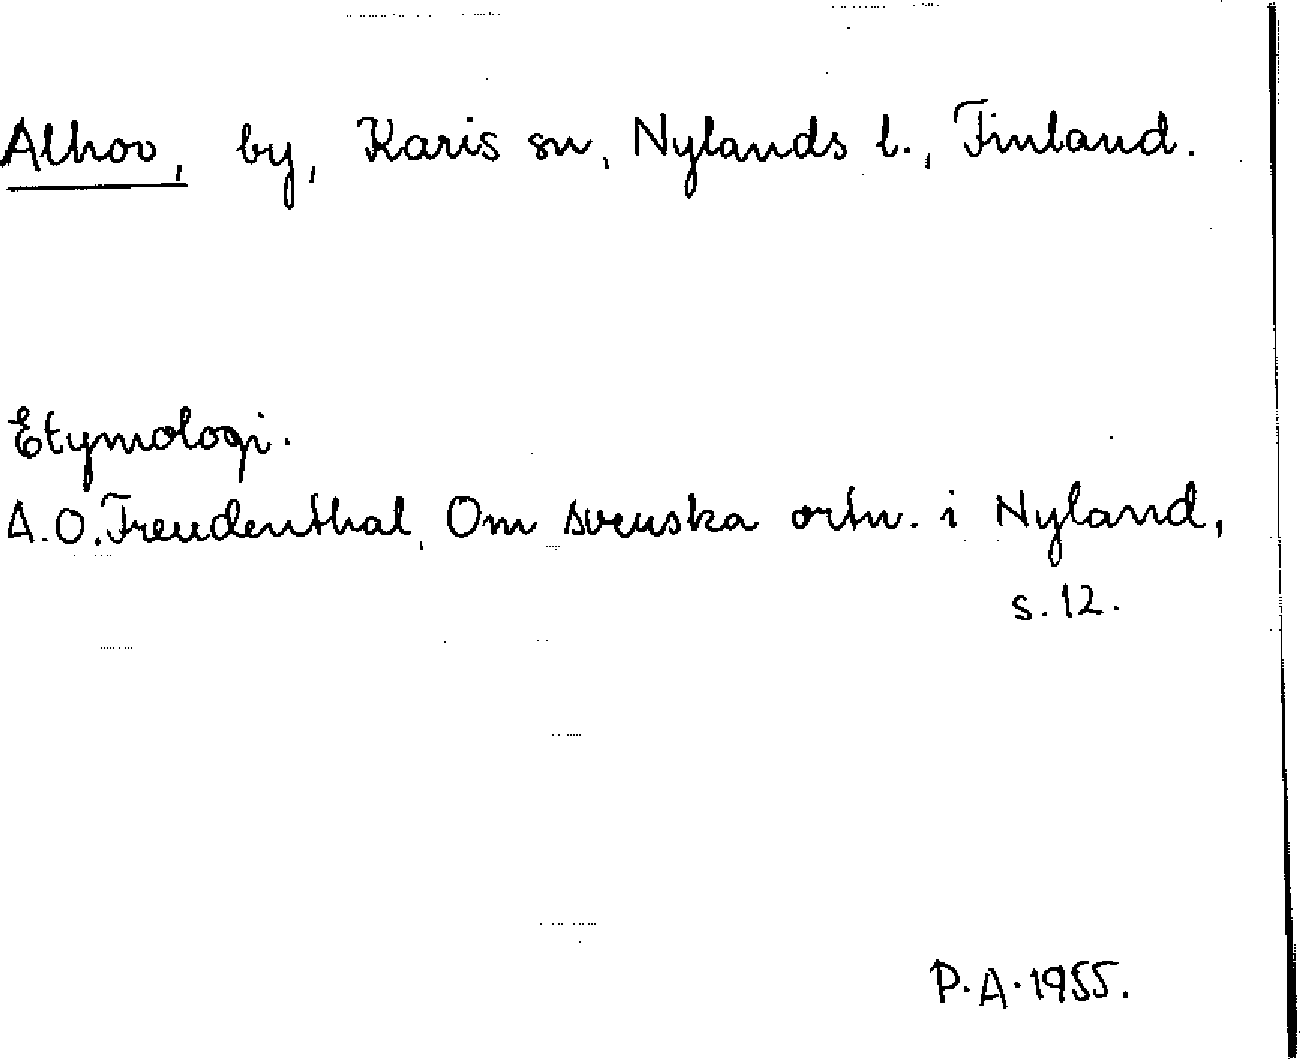 Alhov, by, Karis sn, Nylands l., Finland.
Etymologi.
A.O. Freudenthal, Om svenska ortn. i Nyland,
s. 12.
P.A. 1955.